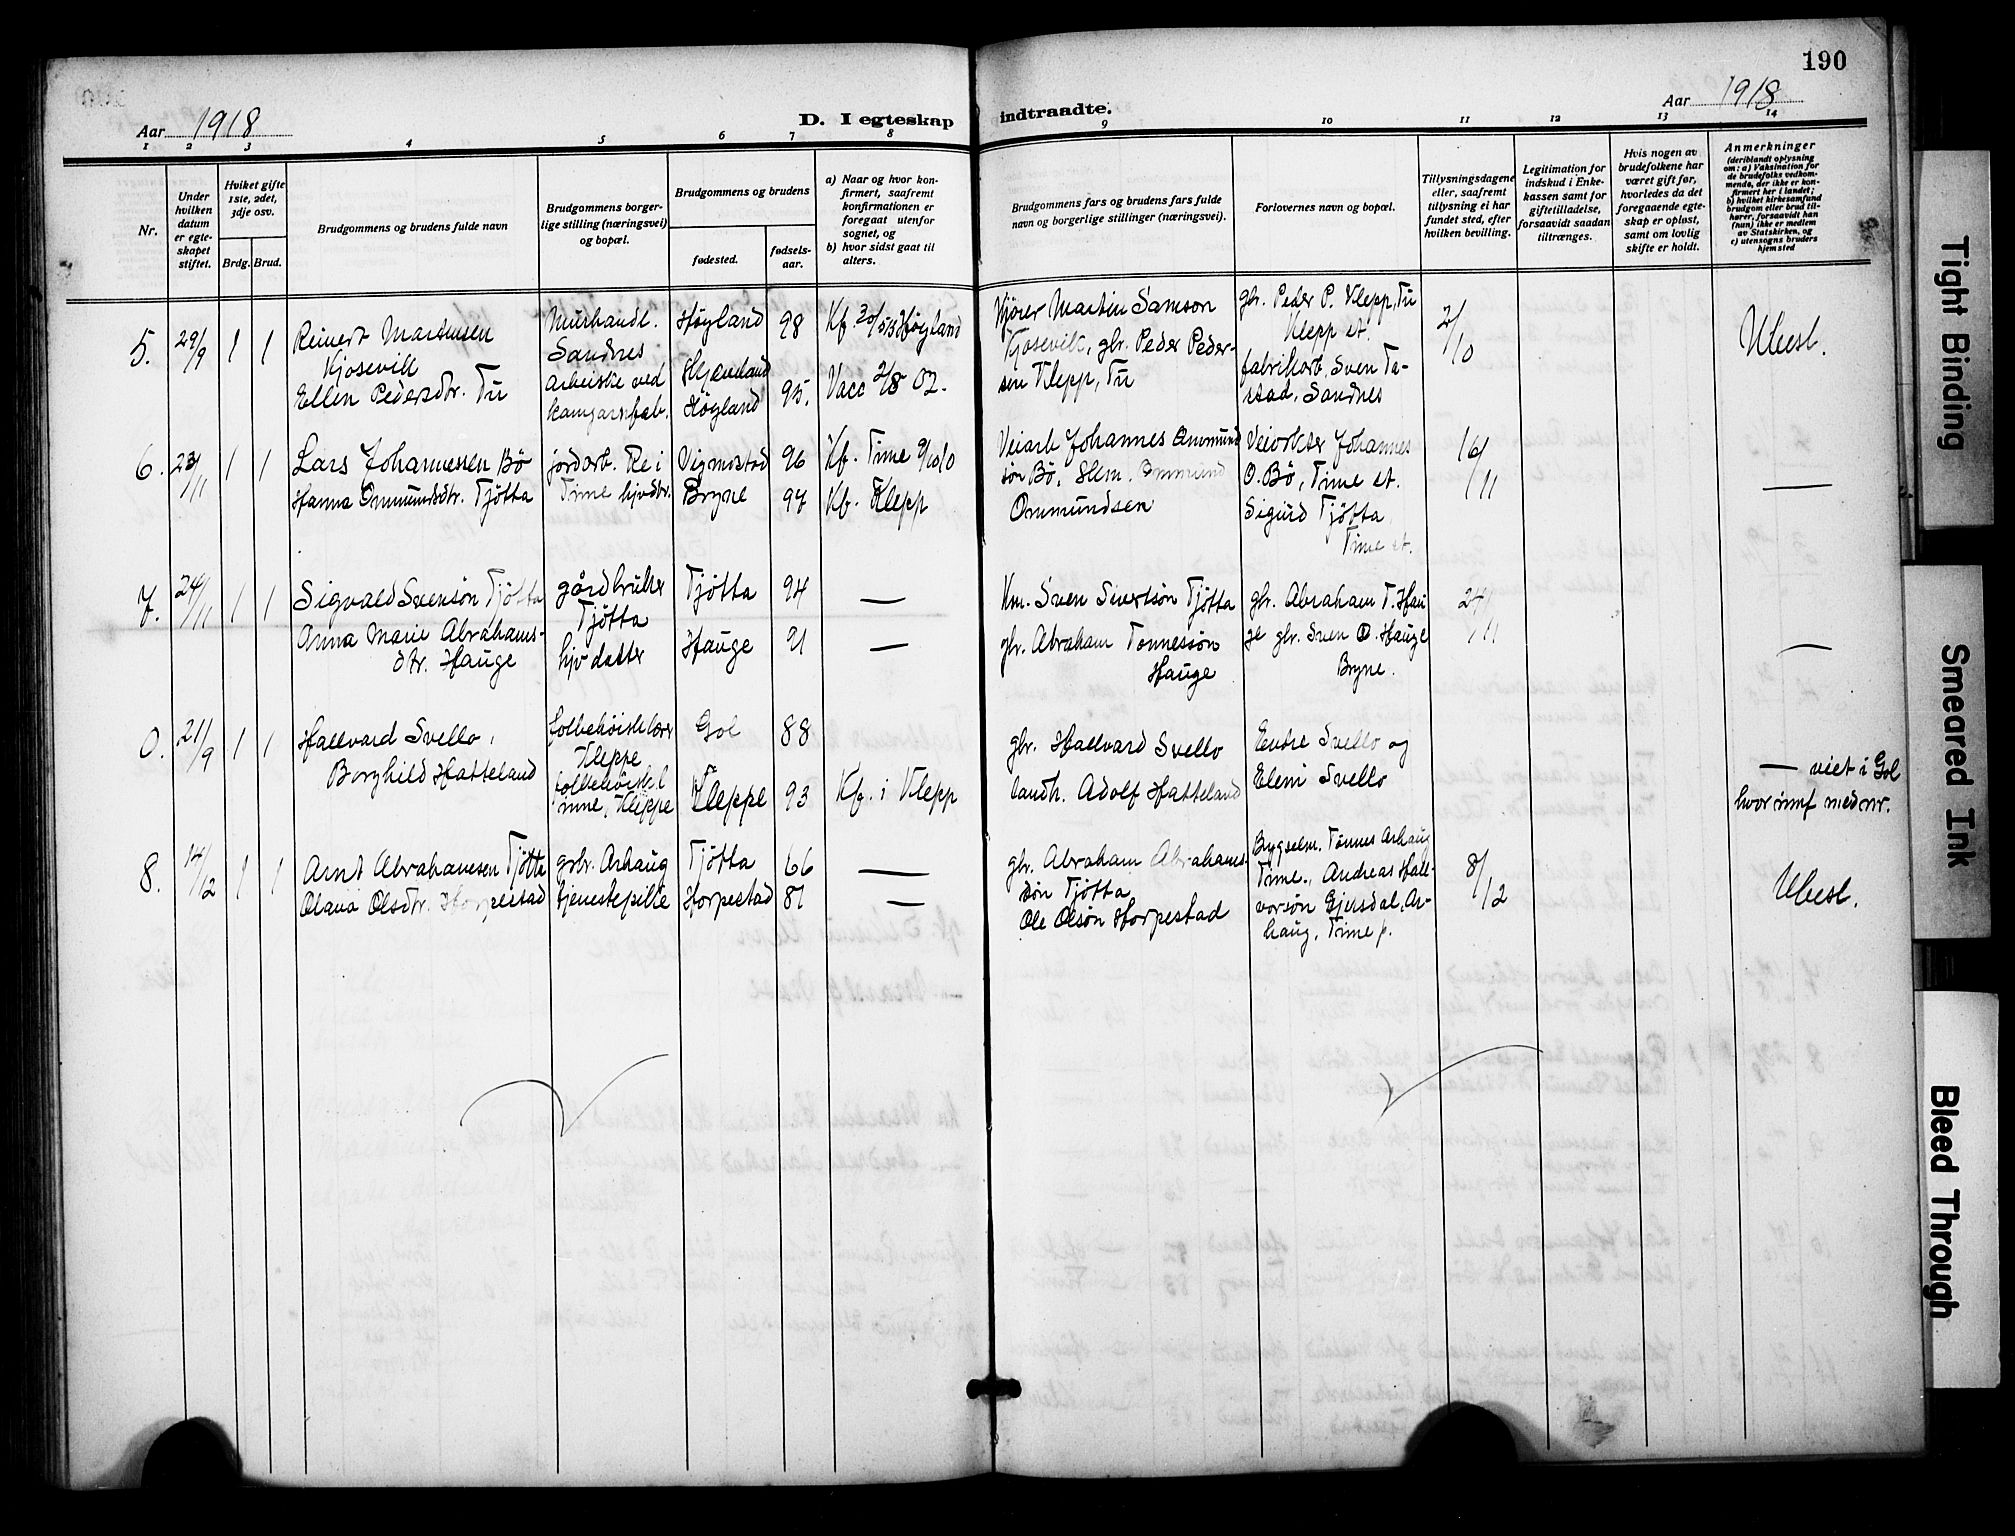 190
Aar 1918
D. I egteskap indtraadte.
Aar 1918.
1 2 3 4 5 6 7 8 9 10 11 12 13 14
Nr.
Under hvilken datum er egteskapet stiftet.
Hvilket gifte 1ste, 2det, 3dje osv.
Brdg. Brud.
Brudgommens og brudens fulde navn
Brudgommens borgerlige stilling (næringsvei) og bopæl.
Brudgommens og brudens
fødested.
fødselsaar.
a) Naar og hvor konfirmert, saafremt konfirmationen er foregaat utenfor sognet, og
b) hvor sidst gaat til alters.
Brudgommens fars og brudens fars fulde navn og borgerlige stillinger (næringsvei).
Forlovernes navn og bopæl.
Tillysningsdagene eller, saafremt tillysning ei har fundet sted, efter hvilken bevilling.
Legitimation for indskud i Enkekassen samt for giftetilladelse, forsaavidt saadan tiltrænges.
Hvis nogen av brudefolkene har været gift før, hvorledes da det foregaaende egteskap er opløst, samt om lovlig skifte er holdt.
Anmerkninger
(deriblandt oplysning om: a) Vaksination for de brudefolks vedkommende, der ikke er konfirmert her i landet; b) hvilket kirkesamfund brudgom eller brud tilhører, forsaavidt han (hun) ikke er medlem av Statskirken, og c) utensogns bruders hjemsted
5. 29/9 1 1
Reinert Martinsen
Kjosevik
Ellen Pedersdtr. Tu
Sandnes
Arbeiske ved
kamgarnfab.
Høyland 98
Høyland 95.
Kf. Høyland
Vacc 2/8 02.
Kjører Martin Samson
Kjosevik, gbr. Peder Pedersen Klepp, Tu
gbr. Peder P. Klepp, Tu
Klepp st.
fabrikarb. Sven Tastad, Sandnes
2/10
Ubesl.
6. 23/11 1 1
Lars Johannessen Bø
Hanna Ommundsdtr. Tjøtta
jordarb. Re i
Time hjvdtr.
Vigmostad 96
Bryne 97
Kf. Time
Kf. Klepp
Veiarb Johannes Ommundsøn Bø, Ommund
Ommundsen
Johannes
O. Bø, Time st.
Sigurd Tjøtta
Time st.
16/11
—
7. 24/11 1 1
Sigvald Svensøn Tjøtta
Anna Marie Abrahams-
dtr. Hauge
gårdbruker
Tjøtta
hjv datter
Tjøtta 94 —
Hauge 91 —
Km. Sven Sivertsøn Tjøtta
gbr. Abraham Tønnessøn
Hauge
gbr. Abraham T. Hau
ge gbr. Sven O. Hauge
Bryne.
24/11
—
0. 21/9 1 1
Hallvard Svello,
Borghild Hatteland
folkehøiskelærer
Kleppe
folkehøiskel
inne, Kleppe
Gol 88
Kleppe 93
Kf. i Klepp
gbr. Hallvard Svello
landh. Adolf Hatteland
Endre Svello og
Eleni Svello
— viet i Gol
hvor innf med nr.
8. 14/12 1 1
Arnt Abrahamsen Tjøtta
Olava Olsdtr. Horpestad
gbr. Arhaug
tjenestepike
Tjøtta 66 —
Horpestad 87 —
gbr. Abraham Abrahams-
søn Tjøtta
Ole Olsøn Horpestad
Bygselm. Tønnes Arhaug
Time., Andreas Hall-
vorsøn Gjesdal, Ar-
haug, Time p.
8/12
Ubesl.
Tight Binding
Smeared Ink
Bleed Through